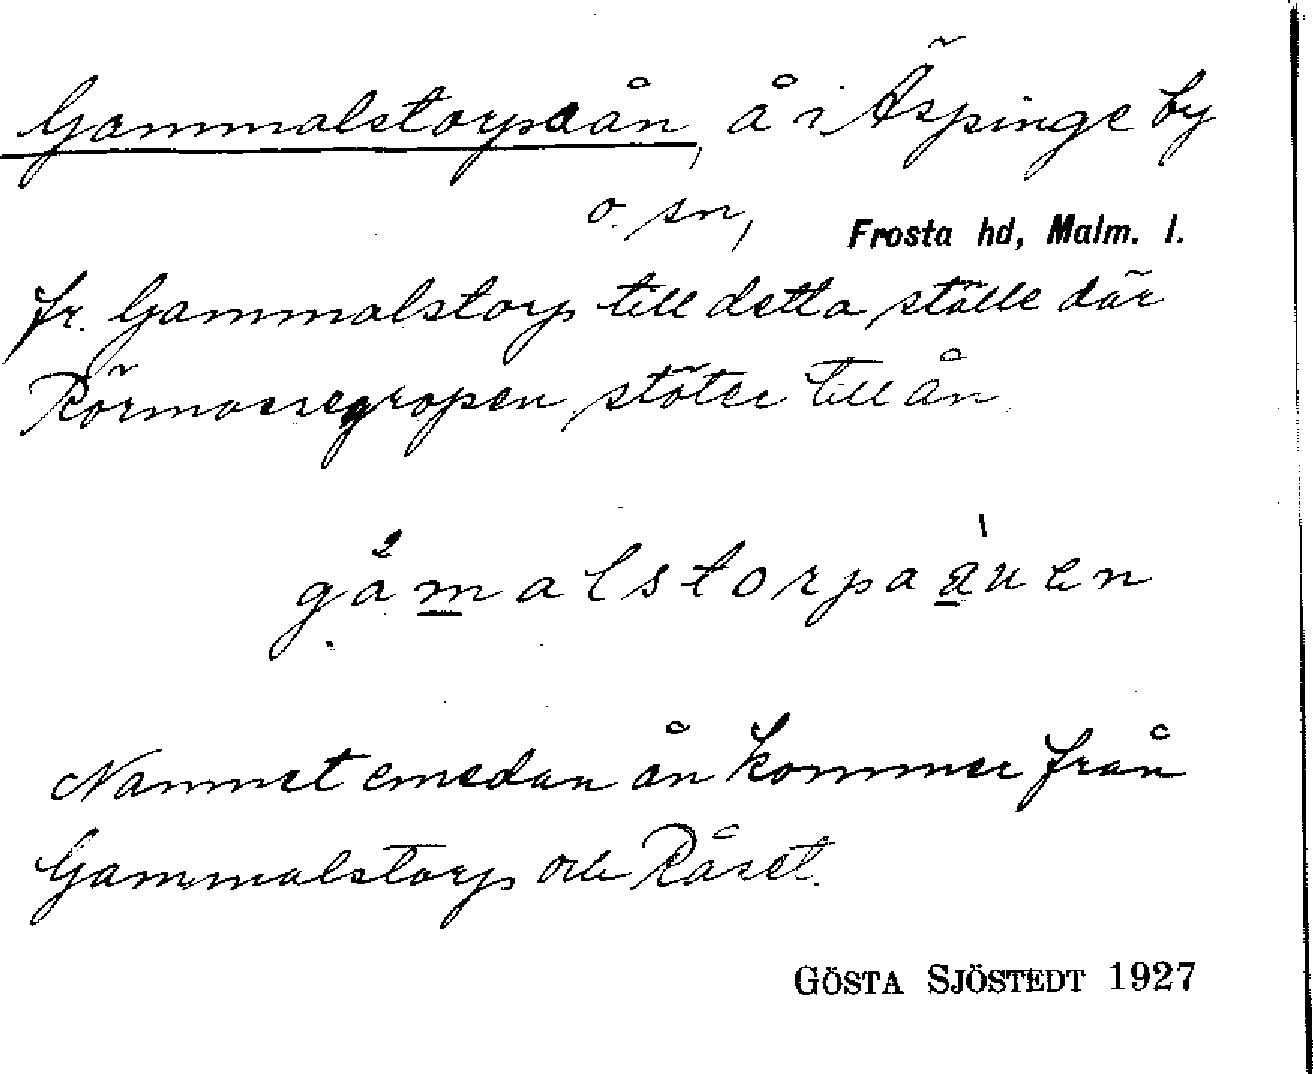 Gammalstorpaån, å i Äspinge by
o. sn, Frosta hd, Malm. l.
fr. Gammalstorp till detta ställe där
Rörmossegropen stöter till ån.
gamalstorpaauen
Namnet emedan ån kommer från
Gammalstorp och Råset.
GÖSTA SJÖSTEDT 1927